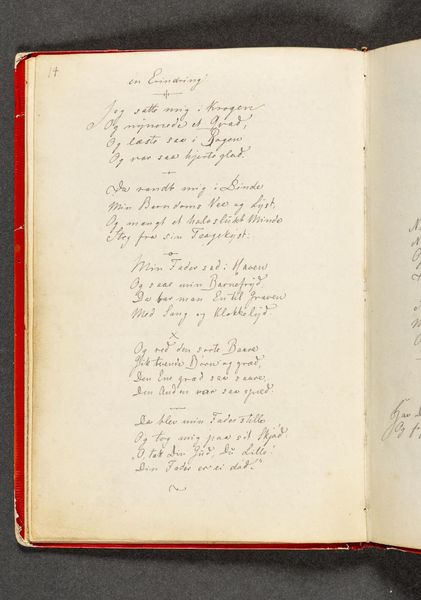 14
en Erindring.
Jeg satte mig i Krogen
Og nynnede et Qvad,
Og læste saa i Bogen
Og var saa hjerteglad.
Da randt mig i Sinde
Min Barndoms Vee og Lyst,
Og mangt et halvslukt Minde
Steg fra sin Taagekyst.
Min Fader sad i Haven
Og saae min Barnefryd,
Da bar man En til Graven
Med Sang og Klokkelyd.
Og ved den sorte Baare
Gik tvende Børn og græd,
Den Ene græd saa saare,
Den Anden var saa spæd.
Da blev min Fader stille
Og tog mig paa sit Skjød
O, tak Din Gud, Du Lille!
Din Fader er ei død."